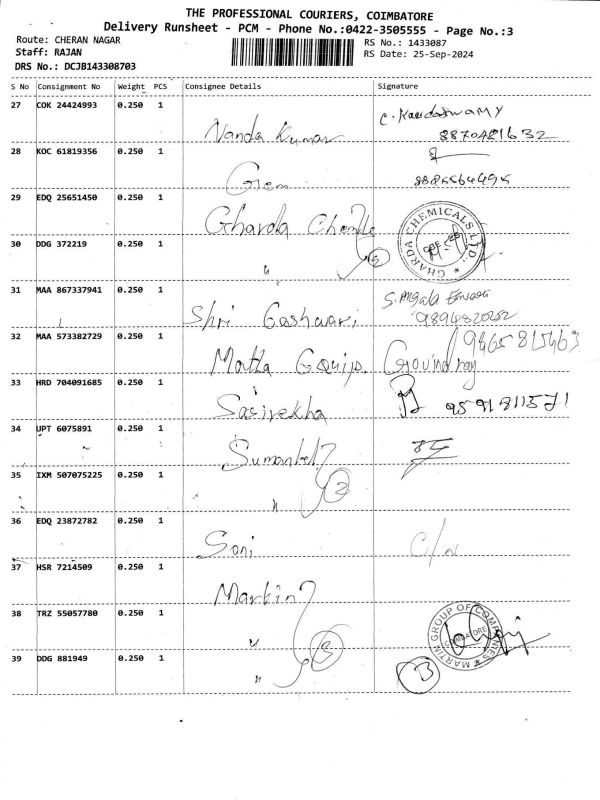 THE PROFESSIONAL COURIERS, COIMBATORE
Delivery Runsheet - PCM - Phone No.:0422-3505555 - Page No.:3
Route: CHERAN NAGAR
RS No.: 1433087
Staff: RAJAN
RS Date: 25-Sep-2024
DRS No.: DCJB143308703
S No Consignment No Weight PCS Consignee Details Signature
27 COK 24424993 0.250 1
Nanda Kumar
8870481632
28 KOC 61819356 0.250 1
Gem
29 EDQ 25651450 0.250 1
Gharda
GHARDA CHEMICALS LTD.
30 DDG 372219 0.250 1
"
31 MAA 867337941 0.250 1
Shri
32 MAA 573382729 0.250 1
9465815463
33 HRD 704091685 0.250 1
Sasirekha
9591811571
34 UPT 6075891 0.250 1
35 IXM 507075225 0.250 1
" 2
36 EDQ 23872782 0.250 1
Soni
37 HSR 7214509 0.250 1
Martin
38 TRZ 55057780 0.250 1
" 3
MARTIN GROUP OF COMPANIES
COIMBATORE
39 DDG 881949 0.250 1
"